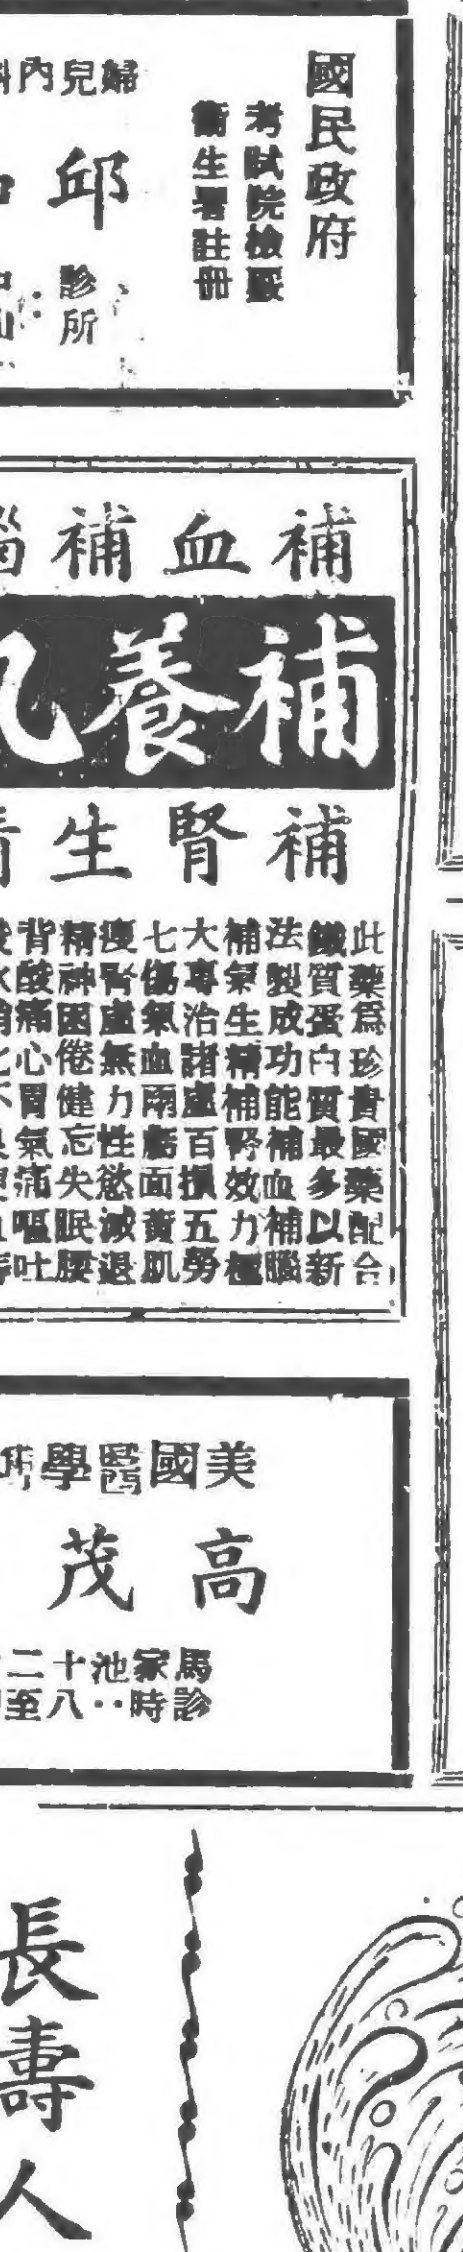 國民政府
考試院檢覈
衞生署註冊
婦兒內科
邱
診所
補血補腦
補養丸
補腎生精
此藥爲珍貴國藥配合
鐵質蛋白質最多以新
法製成功能補血補腦
補氣生精補腎效力極
大專治諸虛百損五勞
七傷氣血兩虧面黃肌
瘦腎虛無力性慾減退
精神困倦健忘失眠腰
背酸痛心胃氣痛嘔吐
美國醫學
高茂
馬家池十二
診時：八至
長壽人